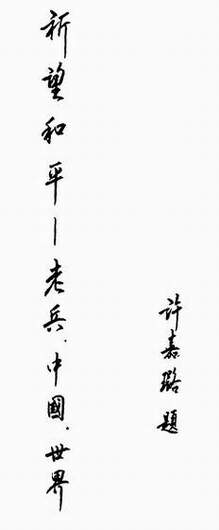 祈望和平—老兵、中國、世界
许嘉璐題